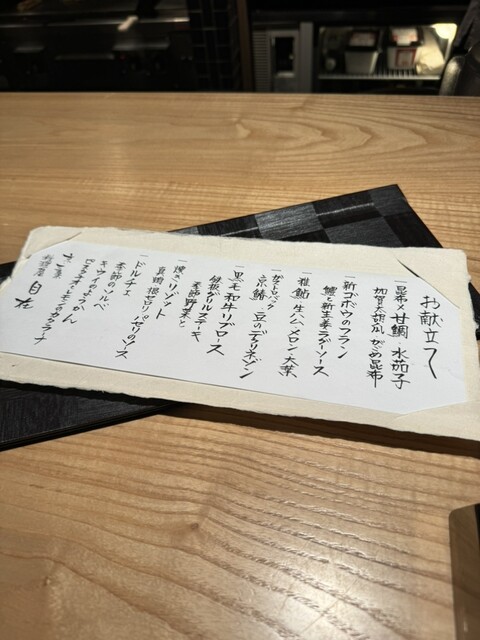 お献立て
一 昆布〆甘鯛 水茄子
加賀太胡瓜 がごめ昆布
一 新ゴボウのフラン
鱧と新生姜ラグーソース
一 稚鮎 生ハム メロン 大葉
一 ガトーバスク
穴子 鰭 豆のデリネゾン
一 黒毛和牛リブロース
鉄板グリルステーキ
季節野菜と
一 焼きリゾット
真鯛 根セロリ パセリのソース
一 ドルチェ
季節のソルベ
キウイのようかん
ピスタチオ レモンのカッサータ